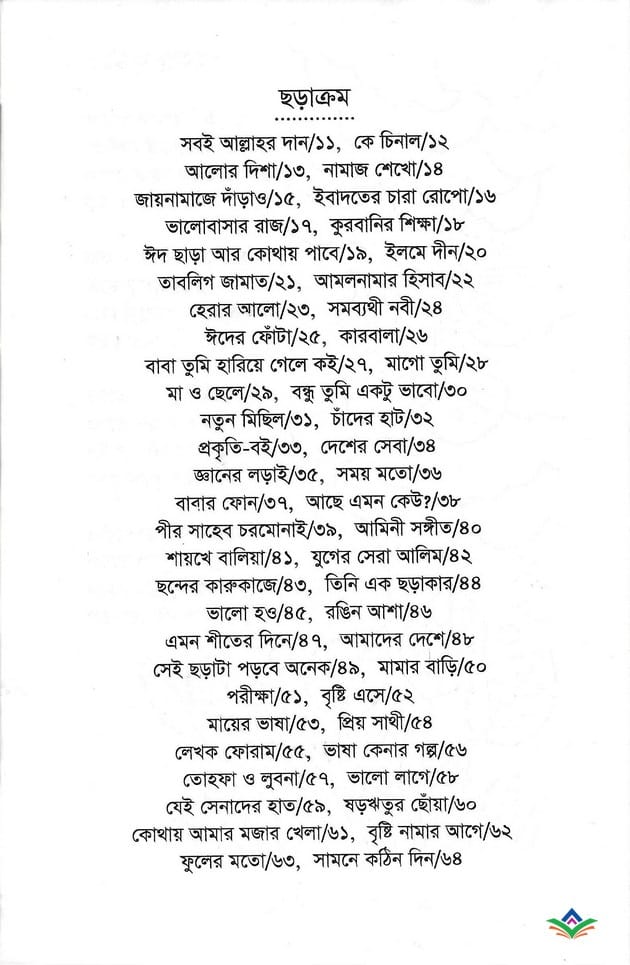 ছড়াক্রম
সবই আল্লাহর দান/১১, কে চিনাল/১২
আলোর দিশা/১৩, নামাজ শেখো/১৪
জায়নামাজে দাঁড়াও/১৫, ইবাদতের চারা রোপো/১৬
ভালোবাসার রাজ/১৭, কুরবানির শিক্ষা/১৮
ঈদ ছাড়া আর কোথায় পাবে/১৯, ইলমে দীন/২০
তাবলিগ জামাত/২১, আমলনামার হিসাব/২২
হেরার আলো/২৩, সমব্যথী নবী/২৪
ঈদের ফোঁটা/২৫, কারবালা/২৬
বাবা তুমি হারিয়ে গেলে কই/২৭, মাগো তুমি/২৮
মা ও ছেলে/২৯, বন্ধু তুমি একটু ভাবো/৩০
নতুন মিছিল/৩১, চাঁদের হাট/৩২
প্রকৃতি-বই/৩৩, দেশের সেবা/৩৪
জ্ঞানের লড়াই/৩৫, সময় মতো/৩৬
বাবার ফোন/৩৭, আছে এমন কেউ?/৩৮
পীর সাহেব চরমোনাই/৩৯, আমিনী সঙ্গীত/৪০
শায়খে বালিয়া/৪১, যুগের সেরা আলিম/৪২
ছন্দের কারুকাজে/৪৩, তিনি এক ছড়াকার/৪৪
ভালো হও/৪৫, রঙিন আশা/৪৬
এমন শীতের দিনে/৪৭, আমাদের দেশে/৪৮
সেই ছড়াটা পড়বে অনেক/৪৯, মামার বাড়ি/৫০
পরীক্ষা/৫১, বৃষ্টি এসে/৫২
মায়ের ভাষা/৫৩, প্রিয় সাথী/৫৪
লেখক ফোরাম/৫৫, ভাষা কেনার গল্প/৫৬
তোহফা ও লুবনা/৫৭, ভালো লাগে/৫৮
যেই সেনাদের হাত/৫৯, ষড়ঋতুর ছোঁয়া/৬০
কোথায় আমার মজার খেলা/৬১, বৃষ্টি নামার আগে/৬২
ফুলের মতো/৬৩, সামনে কঠিন দিন/৬৪